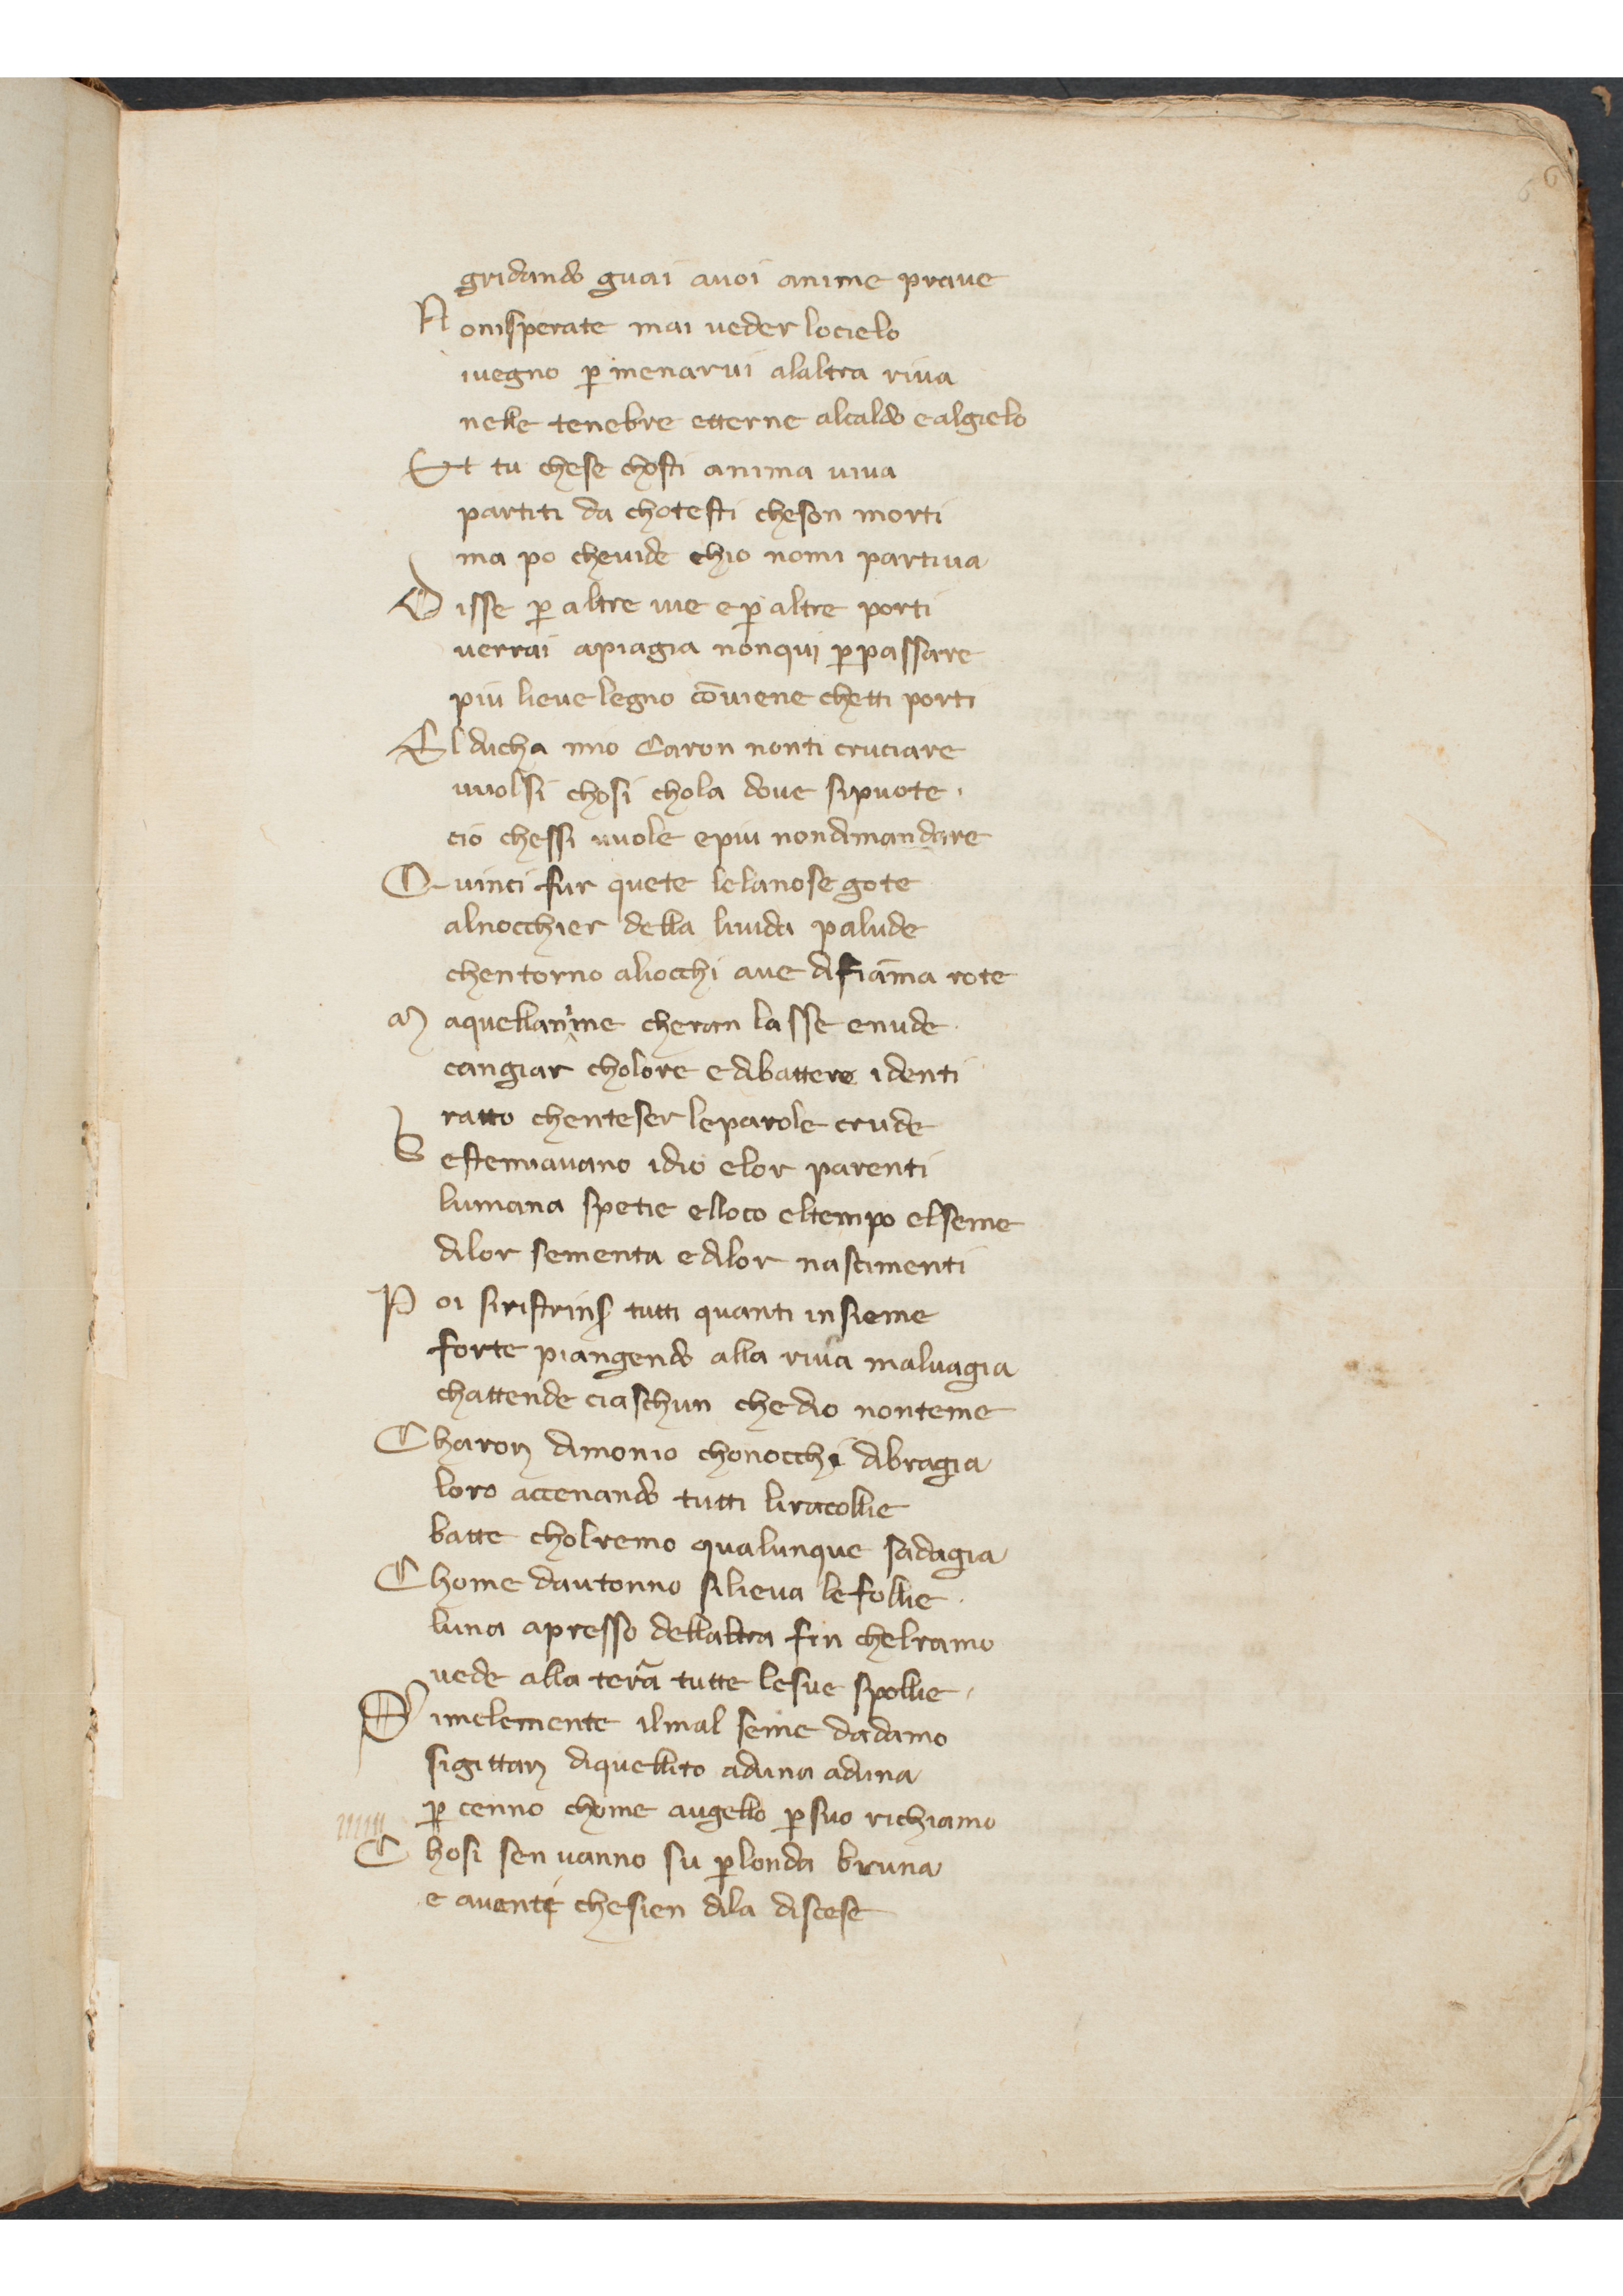 6
gridando guai auoi anime praue
N onisperate mai ueder locielo
iuegno ꝑ menarui alaltra riua
nelle tenebre etterne alcaldo ealgielo
Et tu chese chosti anima uiua
partiti da chotesti cheson morti
ma po cheuide chio nomi partiua
D isse ꝑ altre uie e ꝑ altre porti
uerrai apiagia nonqui ꝑpassare
piu lieue legno cōuiene chetti porti
El ducha mio Caron nonti cruciare
uuolsi chosi chola doue sipuote
cio chessi uuole epiu nondimandare
Q uinci fur quete lelanose gote
alnocchier della liuida palude
chentorno aliocchi aue difiāma rote
M aquellanime cheran lasse enude
cangiar cholore e dibattero identi
ratto chenteser leparole crude
B estemiauano idio elor parenti
lumana spetie elloco eltempo elseme
dilor sementa e dilor nascimenti
P oi siristrins tutti quanti insieme
forte piangendo alla riua maluagia
chattende ciaschun che dio nonteme
Charon dimonio chonocchi dibragia
loro accenando tutti liracollie
batte cholremo qualunque sadagia
Chome dautonno silieua le follie
luna apresso dellaltra fin chelramo
uede alla terā tutte lesue spollie
S imelemente ilmal seme dadamo
sigittan diquellito aduna aduna
ꝑ cenno chome augello ꝑ suo richiamo
C hosi sen uanno su ꝑ londa bruna
e auanti chesien dila discese